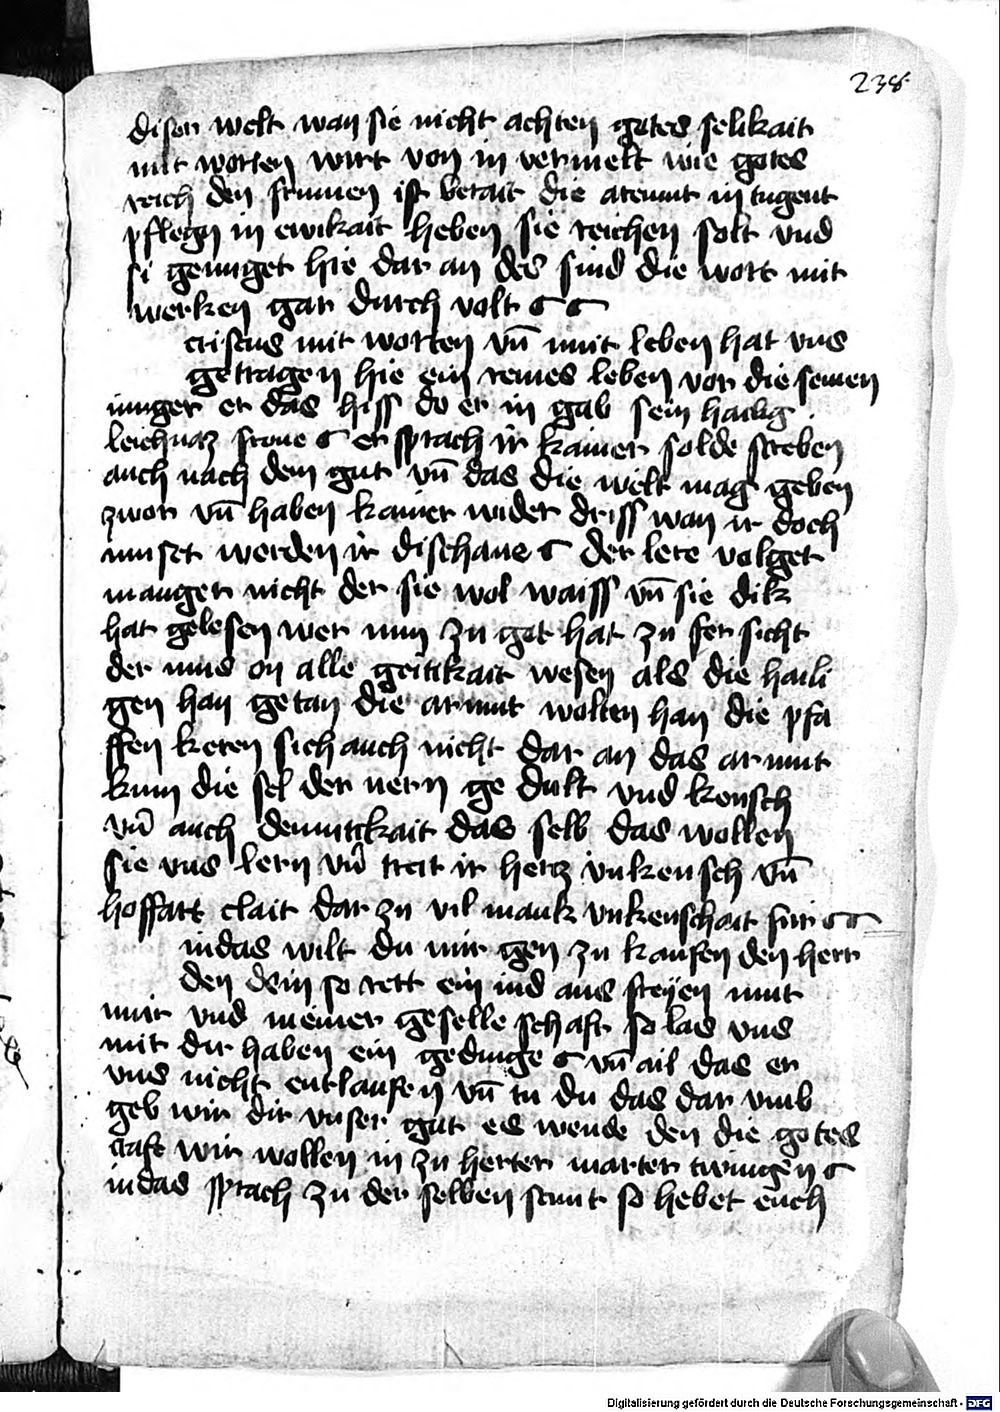 238
diser welt wan sie nicht achten gotes selikait
mit worten wirt von in vermelt wie gotes
reich den frumen ist berait die armut in tugent
pflegn in ewikait heben sie reichen solt vnd
si genuget hie dar an des sind die wort mit
werken gar durch volt
cristus mit worten vn̄ mit leben hat vns
getragen hie ein reines leben vor die seinen
iunger er das hiss do er in gab sein hailig
leichnaz frone er sprach ir kainer solde streben
auch nach dem gut vn̄ das die welt mag geben
zwor vn̄ haben kainer wider driss wan ir doch
muset werden ir dischane der lere volget
manger nicht der sie wol waiss vn̄ sie dik
hat gelesen wer nun zu got hat zu fer sicht
der mus on alle geitikait wesen als die haili
gen han getan die armut wolten han die pfa
ffen keren sich auch nicht dar an das armut
kum die sel der nern ge dult vnd keusch
vn̄ auch demutckait das selb das wollen
sie vns lern vn̄ treit ir hertz vnkeusch vn̄
hoffart clait dar zu vil mank vnkeuschait fur
iudas wilt du mir gen zu kaufen den herr
den dein so rett ein iud aus freyen mut
mir vnd meiner geselle schaft so las vns
mit dir haben ein gedinge vn̄ ail das er
vns nicht entlaufen vn̄ tu du das dar vmb
geb wir dir vnser gut es wende den die gotes
craft wir wollen in zu herter marter twingen
iudas sprach zu der selben stunt so hebet euch
Digitalisierung gefördert durch die Deutsche Forschungsgemeinschaft - DFG